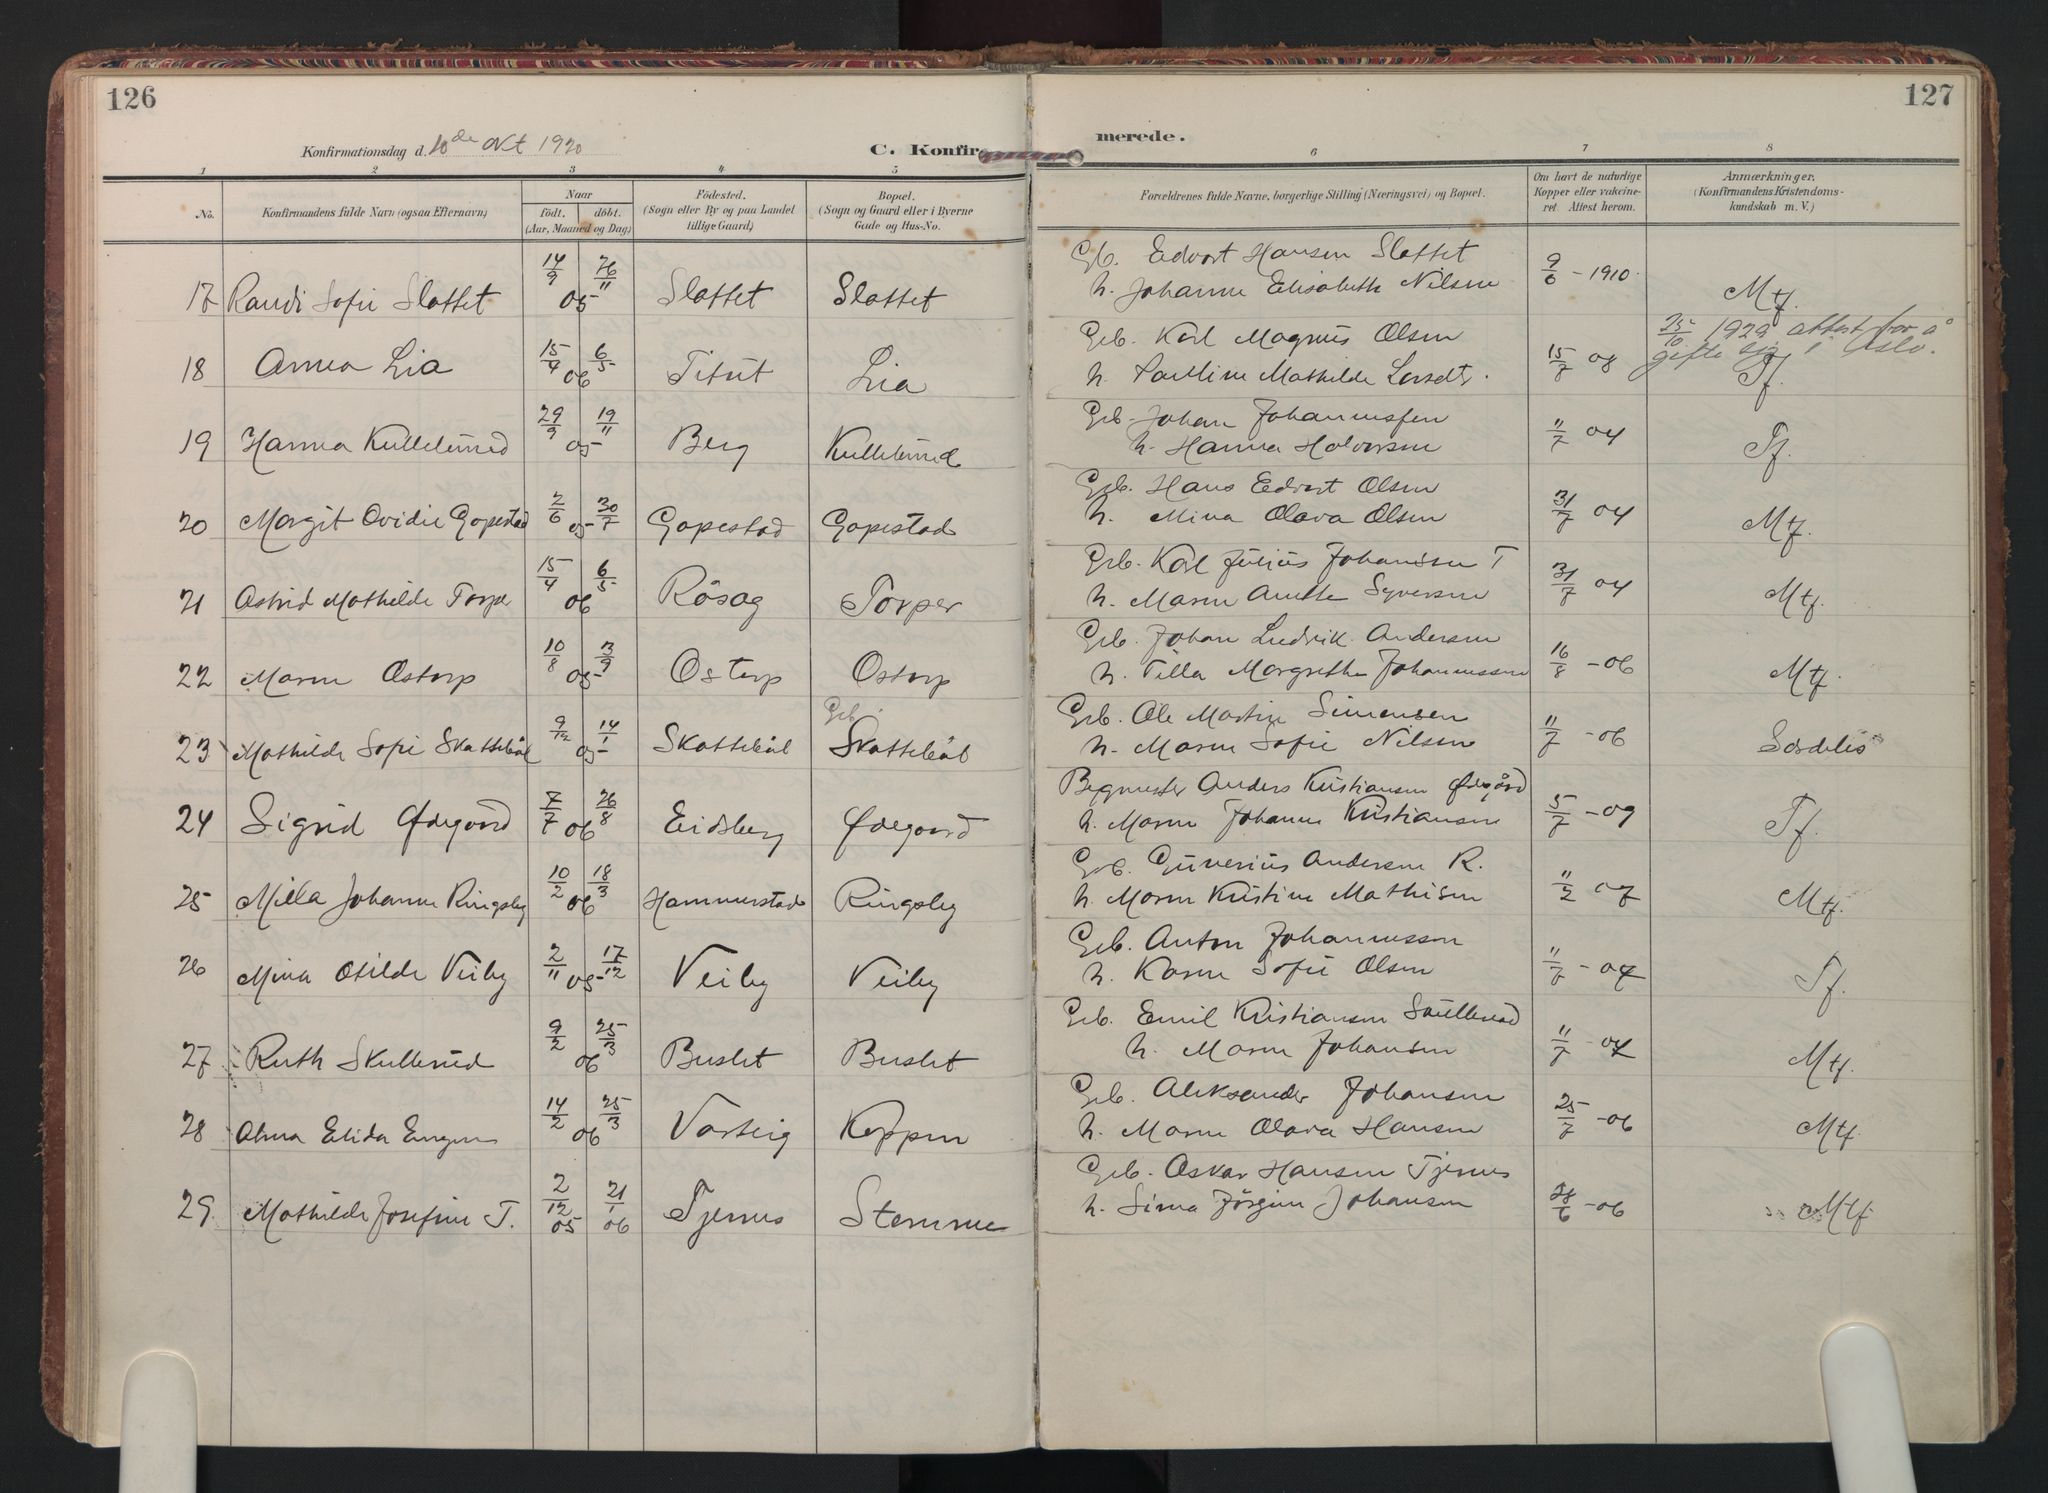 126
127
Konfirmationsdag d. 10de Okt 1920
C. Konfir
merede.
1 2 3 4 5 6 7 8
No.
Konfirmandens fulde Navn (ogsaa Efternavn)
Naar
födt. döbt.
(Aar, Maaned og Dag)
Födested.
(Sogn eller By og paa Landet
tillige Gaard)
Bopæl.
(Sogn og Gaard eller i Byerne
Gade og Hus-No.
Forældrenes fulde Navne, borgerlige Stilling (Næringsvei) og Bopæl.
Om havt de naturlige
Kopper eller vakcine-
ret Attest herom.
Anmærkninger.
(Konfirmandens Kristendoms-
kundskab m. V.)
Gb. Edvart Hansen Slottet
17 Randi Sofie Slottet 14/9 26/11 05 Slottet Slottet h. Johanne Elisabeth Nilsen 9/6 - 1910 Mtf.
Grb. Karl Magnus Olsen 25/10 1929 attest for å
gifte sig i Oslo.
18 Anna Lia 15/4 6/5 06 Titut Lia h. Pauline Mathilde 15/7 08 Tf.
Grb. Johan Johannessen
19 Hanna Kullerud 29/9 19/11 05 Berg Kullerud h. Hanna Halvorsen 11/7 04 Tf.
Grb. Hans Edvart Olsen
20 Margit Ovidie Gopestad 2/6 30/7 05 Gopestad Gopestad h. Mina Olava Olsen 31/7 04 Mtf.
Grb. Karl Julius Johansen T
21 Astrid Mathilde Torper 15/4 6/5 06 Råsog Torper h. Maren Anette Syversen 31/7 04 Mtf.
Grb. Johan Ludvik Andersen
22 Maren Ostorp 10/8 3/9 05 Ostorp Ostorp h. Tilla Margrethe Johannessen 16/8 - 06 Mtf.
Grb.
Grb. Ole Martin Simensen
23 Mathilde Sofie Skattebøl 9/12 14/1 05 Skattebøl Skattebøl h. Maren Sofie Nilsen 11/7 - 06 Særdeles
Bygmester Anders Kristiansen Ødegård
24 Sigrid Ødegaard 7/7 26/8 06 Eidsberg Ødegaard h. Maren Johanne Kristiansen 5/7 - 09 Tf.
Grb. Gunerius Andersen R.
25 Milla Johanne Ringsby 10/2 18/3 06 Hammerstad Ringsby h. Maren Kristine Mathisen 11/2 07 Mtf.
Grb. Anton Johannessen
26 Mina Otilde Veiby 2/11 17/12 05 Veiby Veiby h. Karen Sofie Olsen 11/7 - 07 Tf.
Grb. Emil Kristiansen Skullerud
27 Ruth Skullerud 9/2 25/3 06 Buslet Buslet h. Maren Johansen 11/7 - 07 Mtf.
Grb. Aleksander Johansen
28 Alma Elida Engen 14/2 25/3 06 Varteig Koppen h. Maren Olava Hansen 25/7 - 06 Mtf
Grb. Oskar Hansen Tjernes
29. Mathilde Josefine T. 2/12 05 21/1 06 Tjernes Stemme h. Sina Jörgine Johansen 28/6 - 06 Mtf